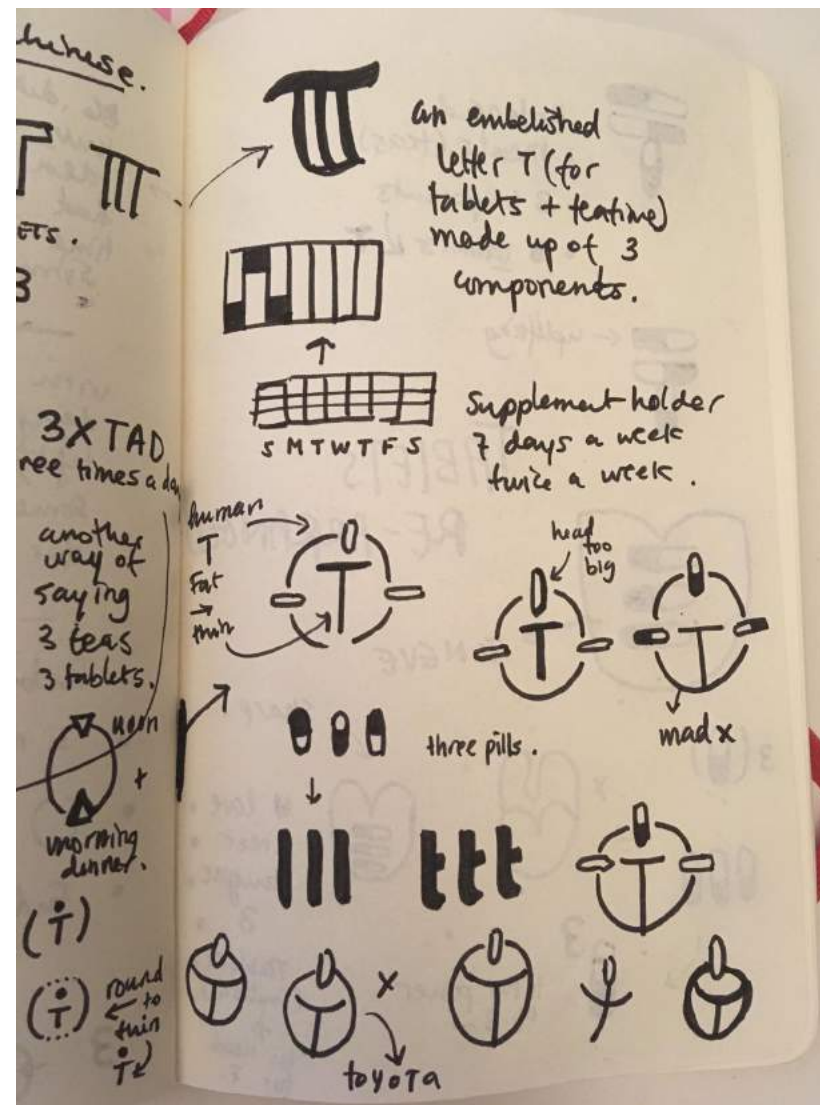 chinese.
T
ETS.
3
3XTAD
ree times a day
another
way of
saying
3 teas
3 tablets.
noon
+
morning
dinner.
(T)
(T)
round
to
thin
T
an embelished
letter T (for
tablets + teatime)
made up of 3
components.
S M T W T F S
Supplement holder
7 days a week
twice a week.
human
T
Fat
→
thin
T
head
too
big
T
T
mad x
three pills.
ttt
T
x
toyota